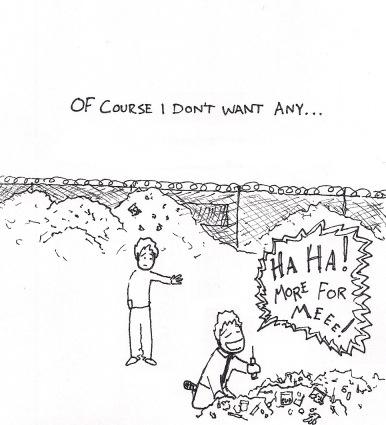 OF COURSE I DON'T WANT ANY...
HA HA!
MORE FOR
MEEE!